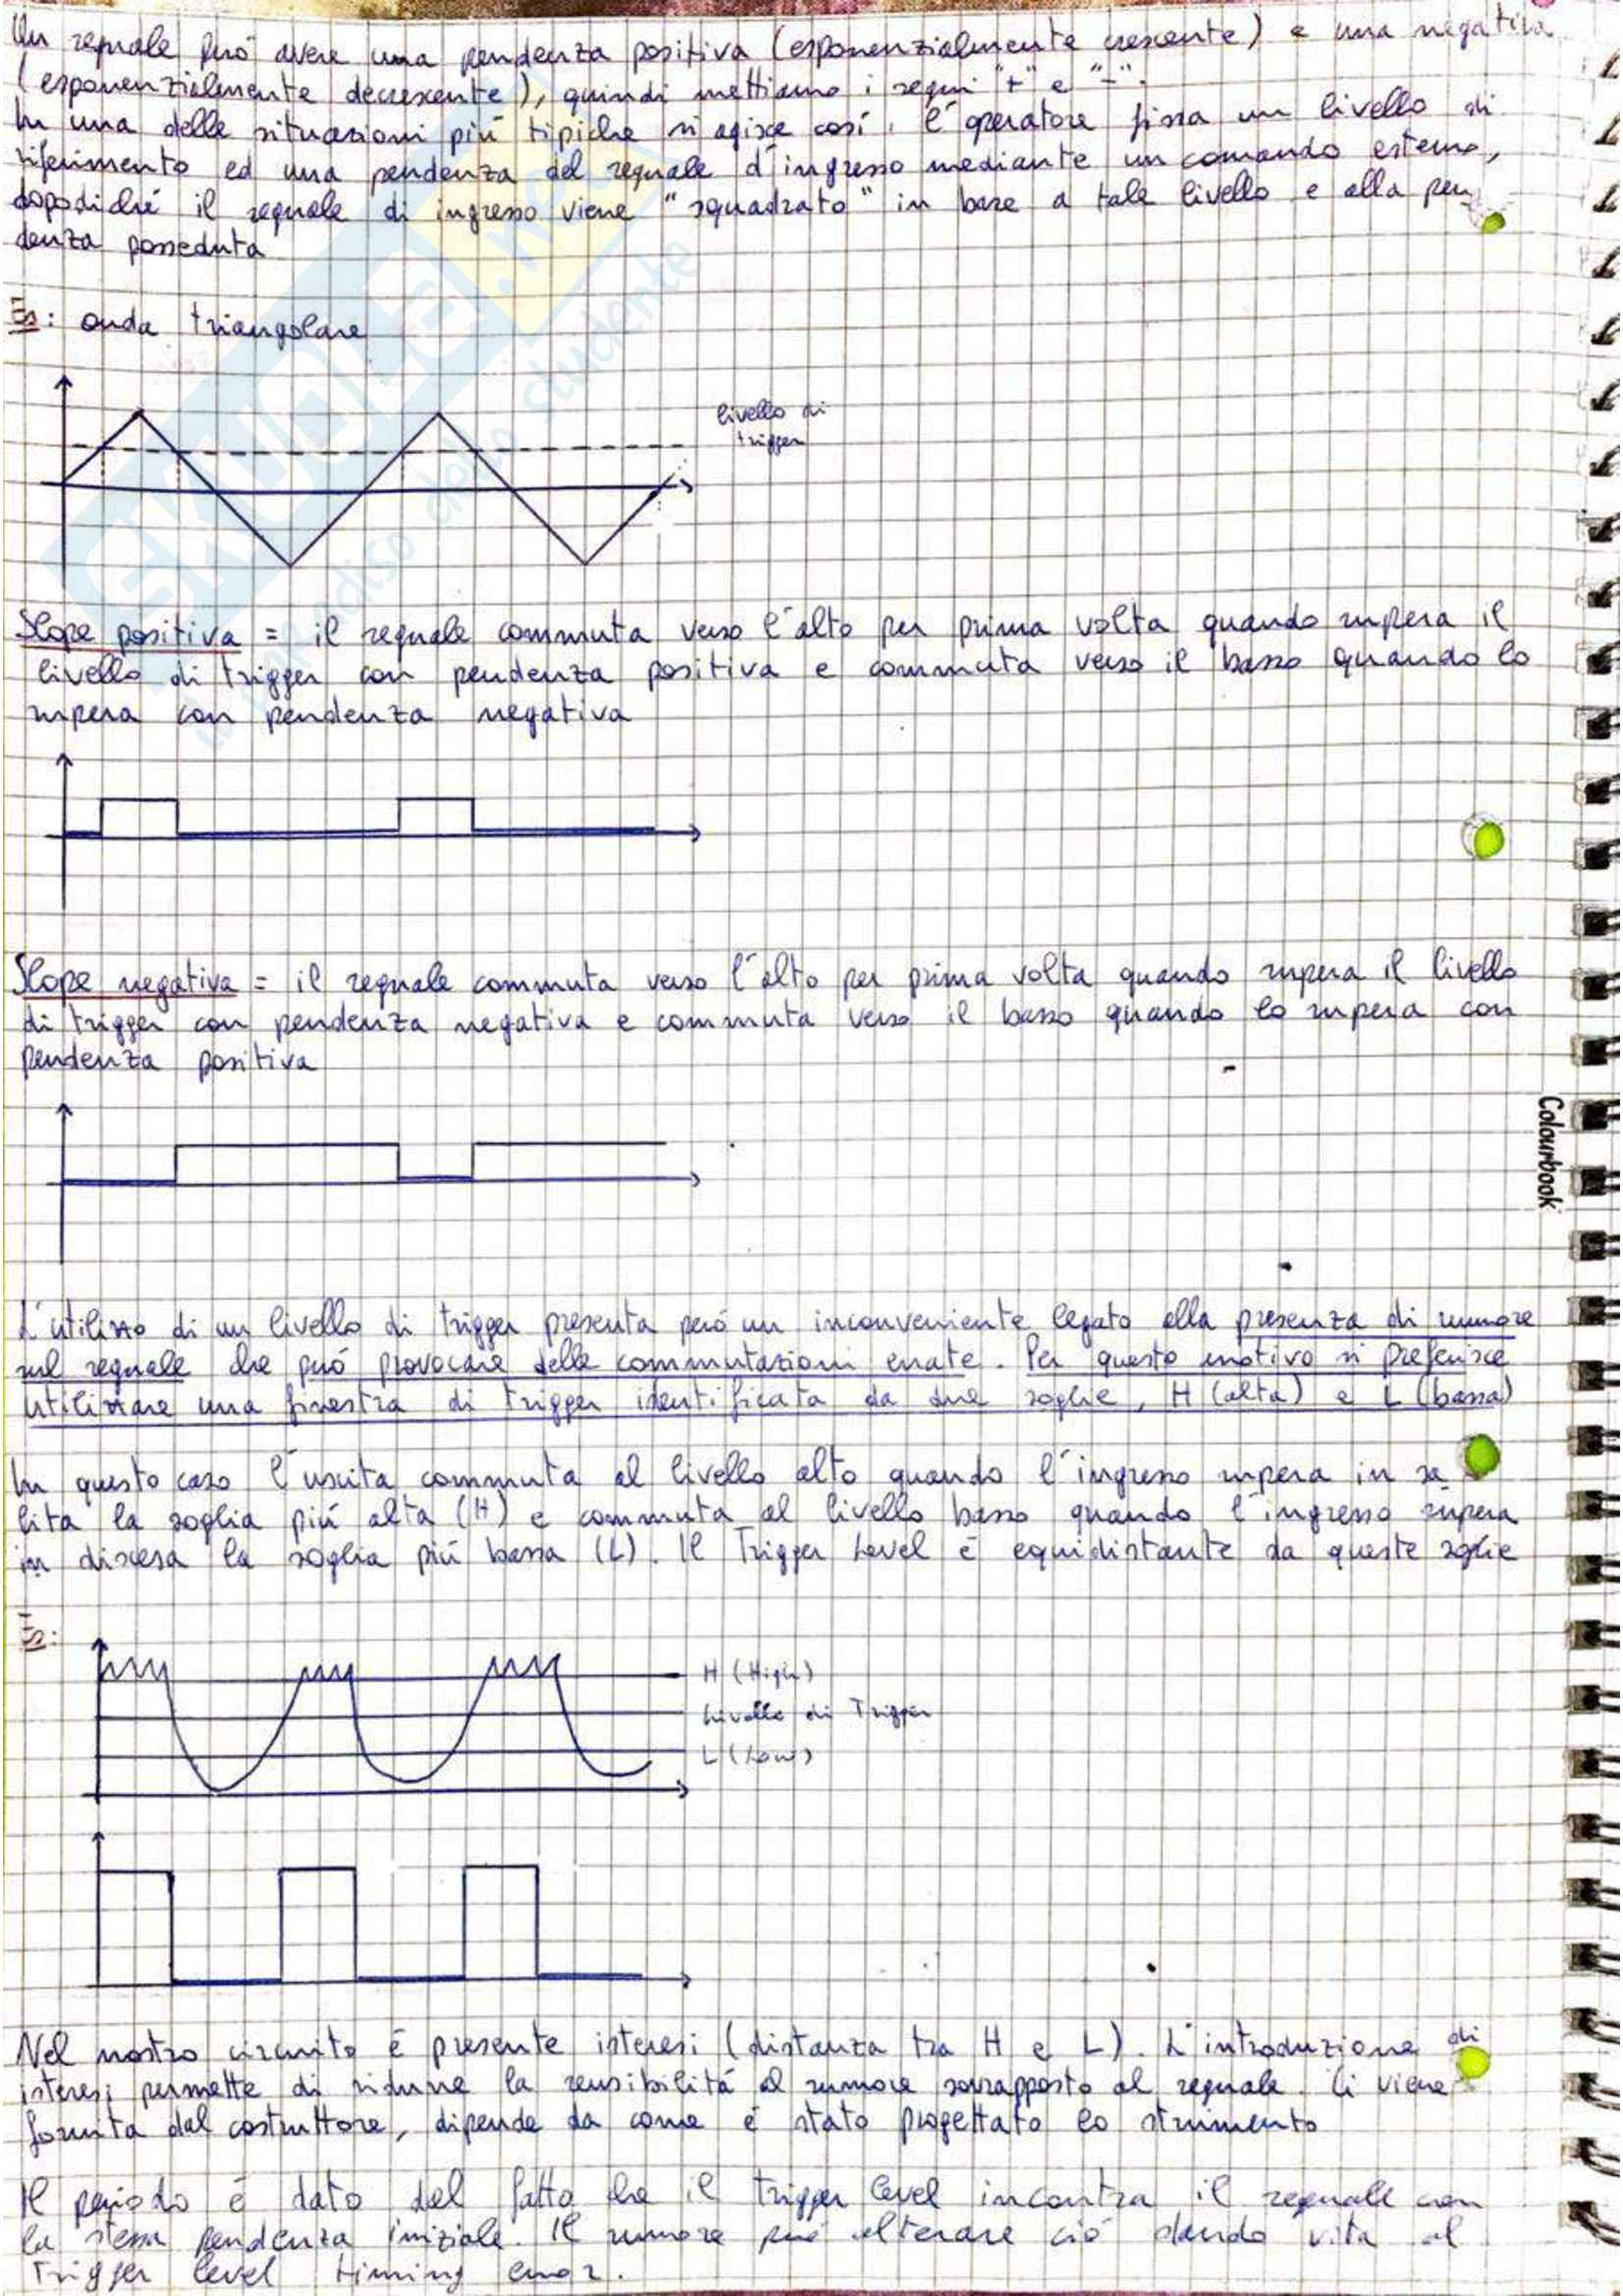 Un segnale può avere una pendenza positiva (esponenzialmente crescente) e una negativa
(esponenzialmente decrescente), quindi mettiamo i segni "+" e "-".
In una delle situazioni più tipiche si agisce così: l'operatore fissa un livello di
riferimento ed una pendenza del segnale d'ingresso mediante un comando esterno,
dopodiché il segnale di ingresso viene "squadrato" in base a tale livello e alla pen
denza posseduta
Es: onda triangolare
livello di
trigger
Slope positiva = il segnale commuta verso l'alto per prima volta quando supera il
livello di trigger con pendenza positiva e commuta verso il basso quando lo
supera con pendenza negativa
Slope negativa = il segnale commuta verso l'alto per prima volta quando supera il livello
di trigger con pendenza negativa e commuta verso il basso quando lo supera con
pendenza positiva
Colourbook
L'utilizzo di un livello di trigger presenta però un inconveniente legato alla presenza di rumore
sul segnale che può provocare delle commutazioni errate. Per questo motivo si preferisce
utilizzare una finestra di trigger identificata da due soglie, H (alta) e L (bassa)
In questo caso l'uscita commuta al livello alto quando l'ingresso supera in sa
lita la soglia più alta (H) e commuta al livello basso quando l'ingresso supera
in discesa la soglia più bassa (L). Il Trigger Level è equidistante da queste soglie
Es:
H (High)
Livello di Trigger
L (Low)
Nel nostro circuito è presente isteresi (distanza tra H e L). L'introduzione di
isteresi permette di ridurre la sensibilità al rumore sovrapposto al segnale. Ci viene
fornita dal costruttore, dipende da come è stato progettato lo strumento
Il periodo è dato dal fatto che il trigger level incontra il segnale con
la stessa pendenza iniziale. Il rumore può alterare ciò dando vita al
Trigger level timing error.